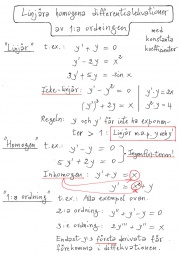 Linjära homogena differentialekvationer
av 1:a ordningen
med
konstanta
koefficienter
"Linjär" t.ex.: y' + y = 0
y' - 2y = x²
3y' + 5y = sin x
Icke-linjär: y' · y = 0 y' · y = 2x
(y')² + 2y = x
Regeln: y och y' får inte ha exponenter
> 1 : Linjär m.a.p. y och y'
"Homogen" t.ex.: y' - y = 0
5y' + 2y = 0
Ingen fri term!
Inhomogen: y' + y = x
y' = x + y
"1:a ordning" t.ex.: Alla exempel ovan.
2:a ordning: y'' + y' - y = 0
3:e ordning: 2y''' + y'' - y = 0
Endast y:s första derivata får
förekomma i diffekvationen.